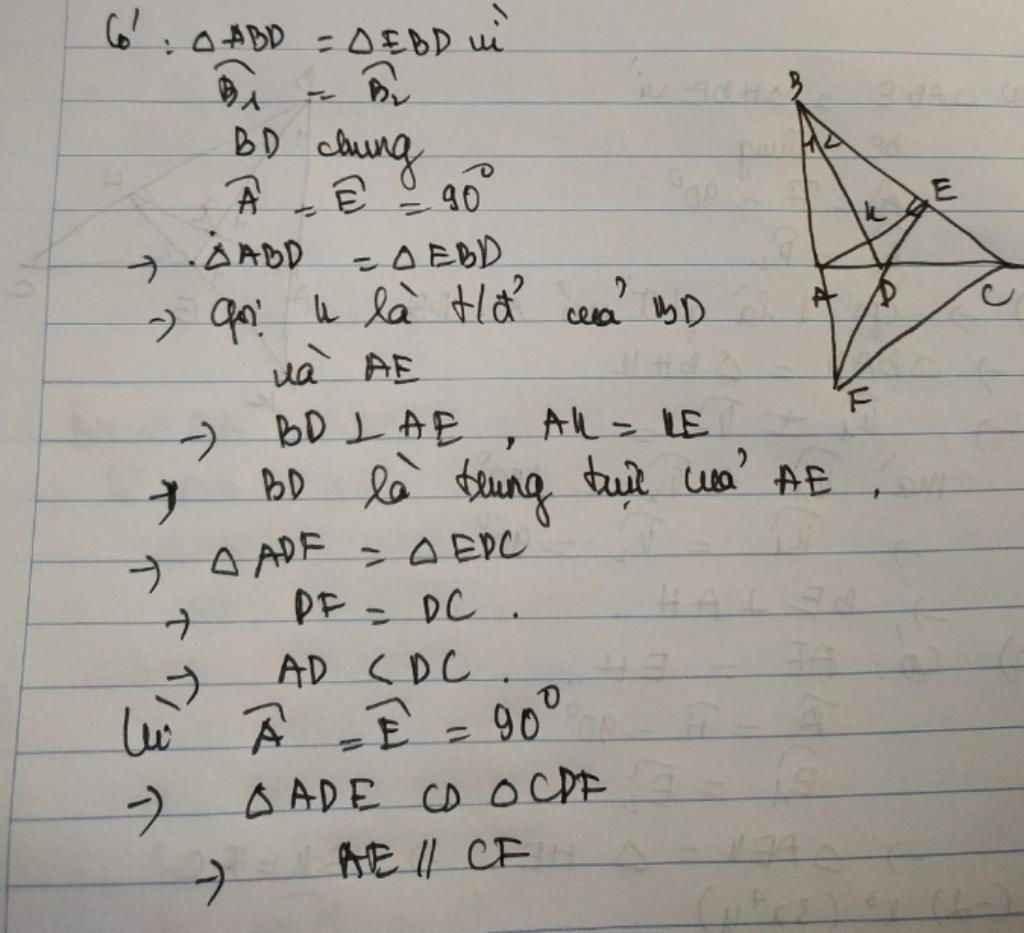 Có : △ABD = △EBD vì
B̂₁ = B̂₂
BD chung
Â = Ê = 90°
→ △ABD = △EBD
→ Gọi K là t/đ' của BD
và AE
→ BD ⊥ AE , AK = KE
→ BD là trung trực của AE .
→ △ ADF = △ EDC
→ DF = DC .
→ AD < DC .
Vì Â = Ê = 90°
→ △ADE ∽ △CDF
→ AE // CF
B
1 2
K
E
A
D
C
F